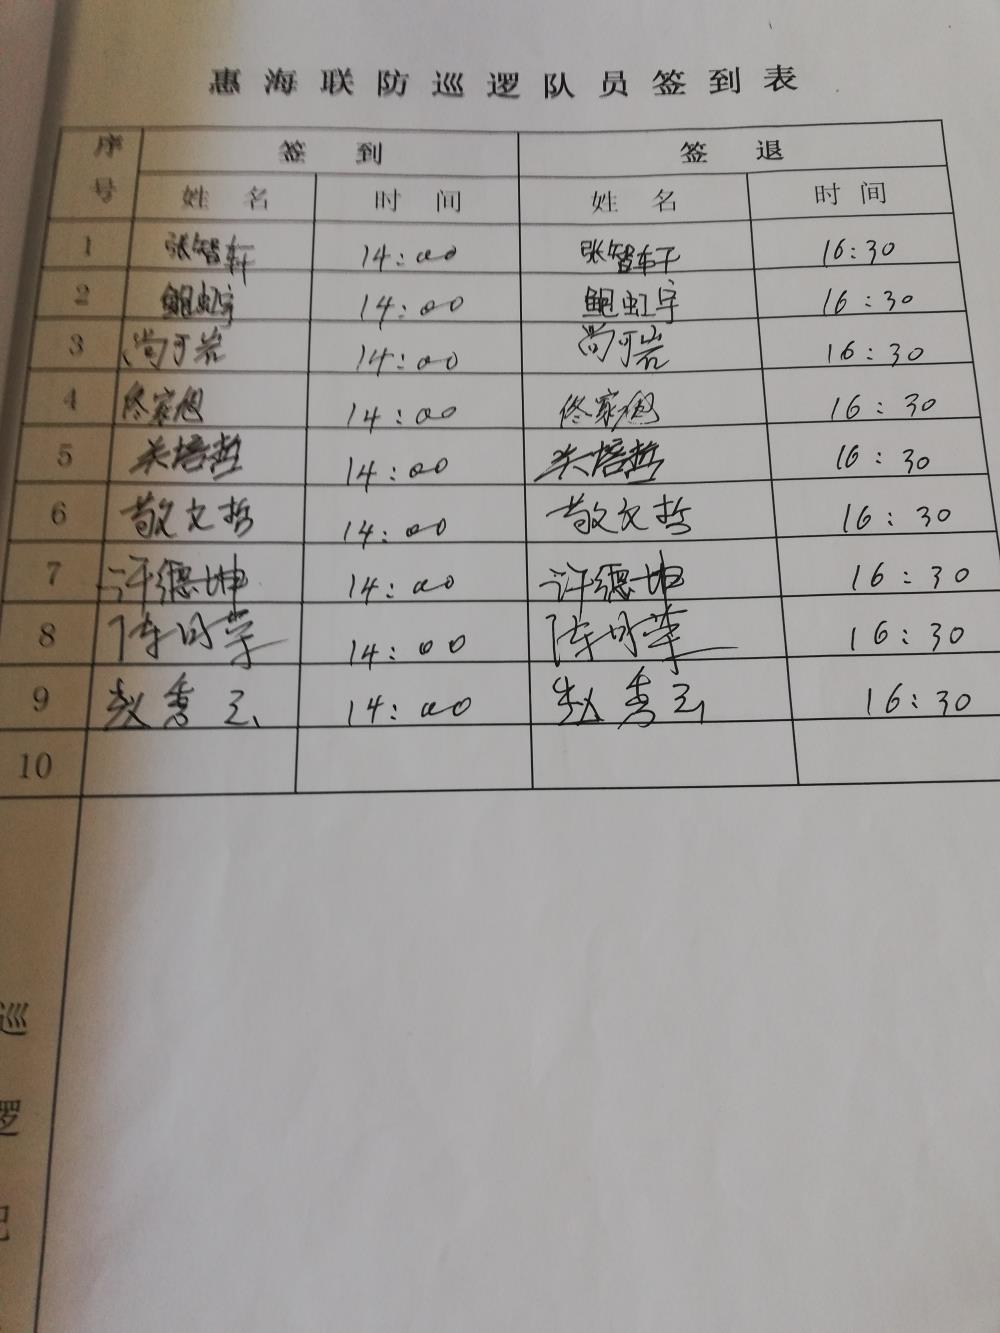 惠海联防巡逻队员签到表
序号 签到 签退
姓名 时间 姓名 时间
1 张智轩 14:00 张智轩 16:30
2 鲍虹宇 14:00 鲍虹宇 16:30
3 尚可岩 14:00 尚可岩 16:30
4 佟家 14:00 佟家 16:30
5 关培哲 14:00 关培哲 16:30
6 敬文哲 14:00 敬文哲 16:30
7 许德坤 14:00 许德坤 16:30
8 陈 14:00 陈 16:30
9 赵秀云 14:00 赵秀云 16:30
10
巡
逻
记